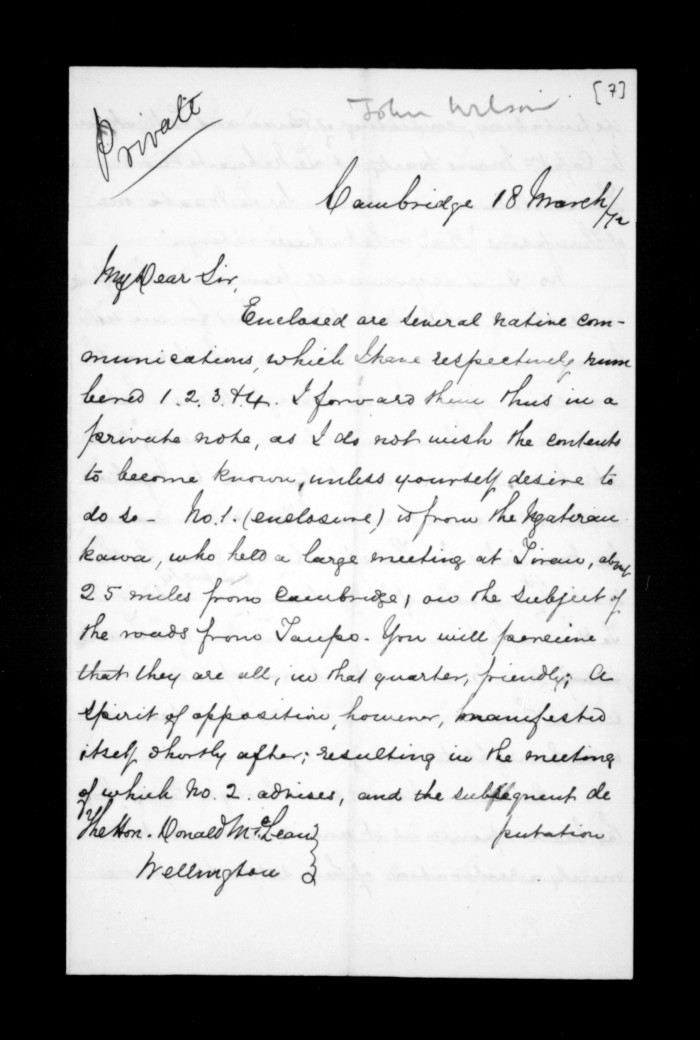 [7]
John Wilson
Private
Cambridge 18 March/72
My Dear Sir,
Enclosed are several native com-
munications, which I have respectively num
bered 1. 2. 3. & 4. I forward them thus in a
private note, as I do not wish the contents
to become known, unless yourself desire to
do so - No. 1. (enclosure) is from the Ngatirau
kawa, who held a large meeting at Tirau, abt
25 miles from Cambridge, on the subject of
the roads from Taupo. You will perceive
that they are all, in that quarter, friendly; A
spirit of opposition, however, manifested
itself shortly after; resulting in the meeting
of which No. 2. advises, and the subsequent de
putation
The Hon. Donald McLean
Wellington